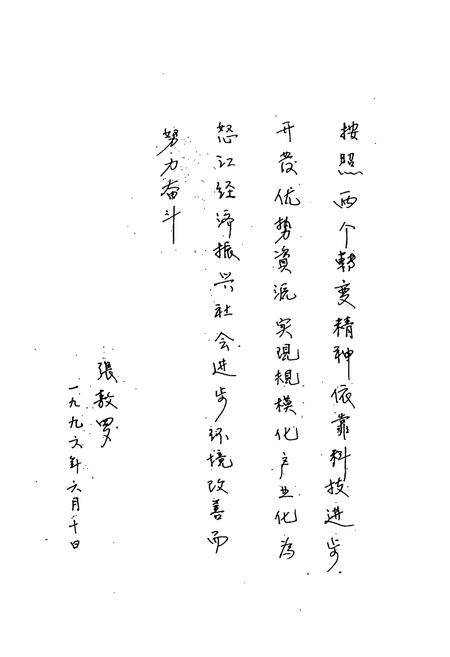 按照两个轉变精神依靠科技进步
开发优势資源实現規模化产业化为
怒江经济振兴社会进步环境改善而
努力奋斗
張敖罗
一九九六年六月十日